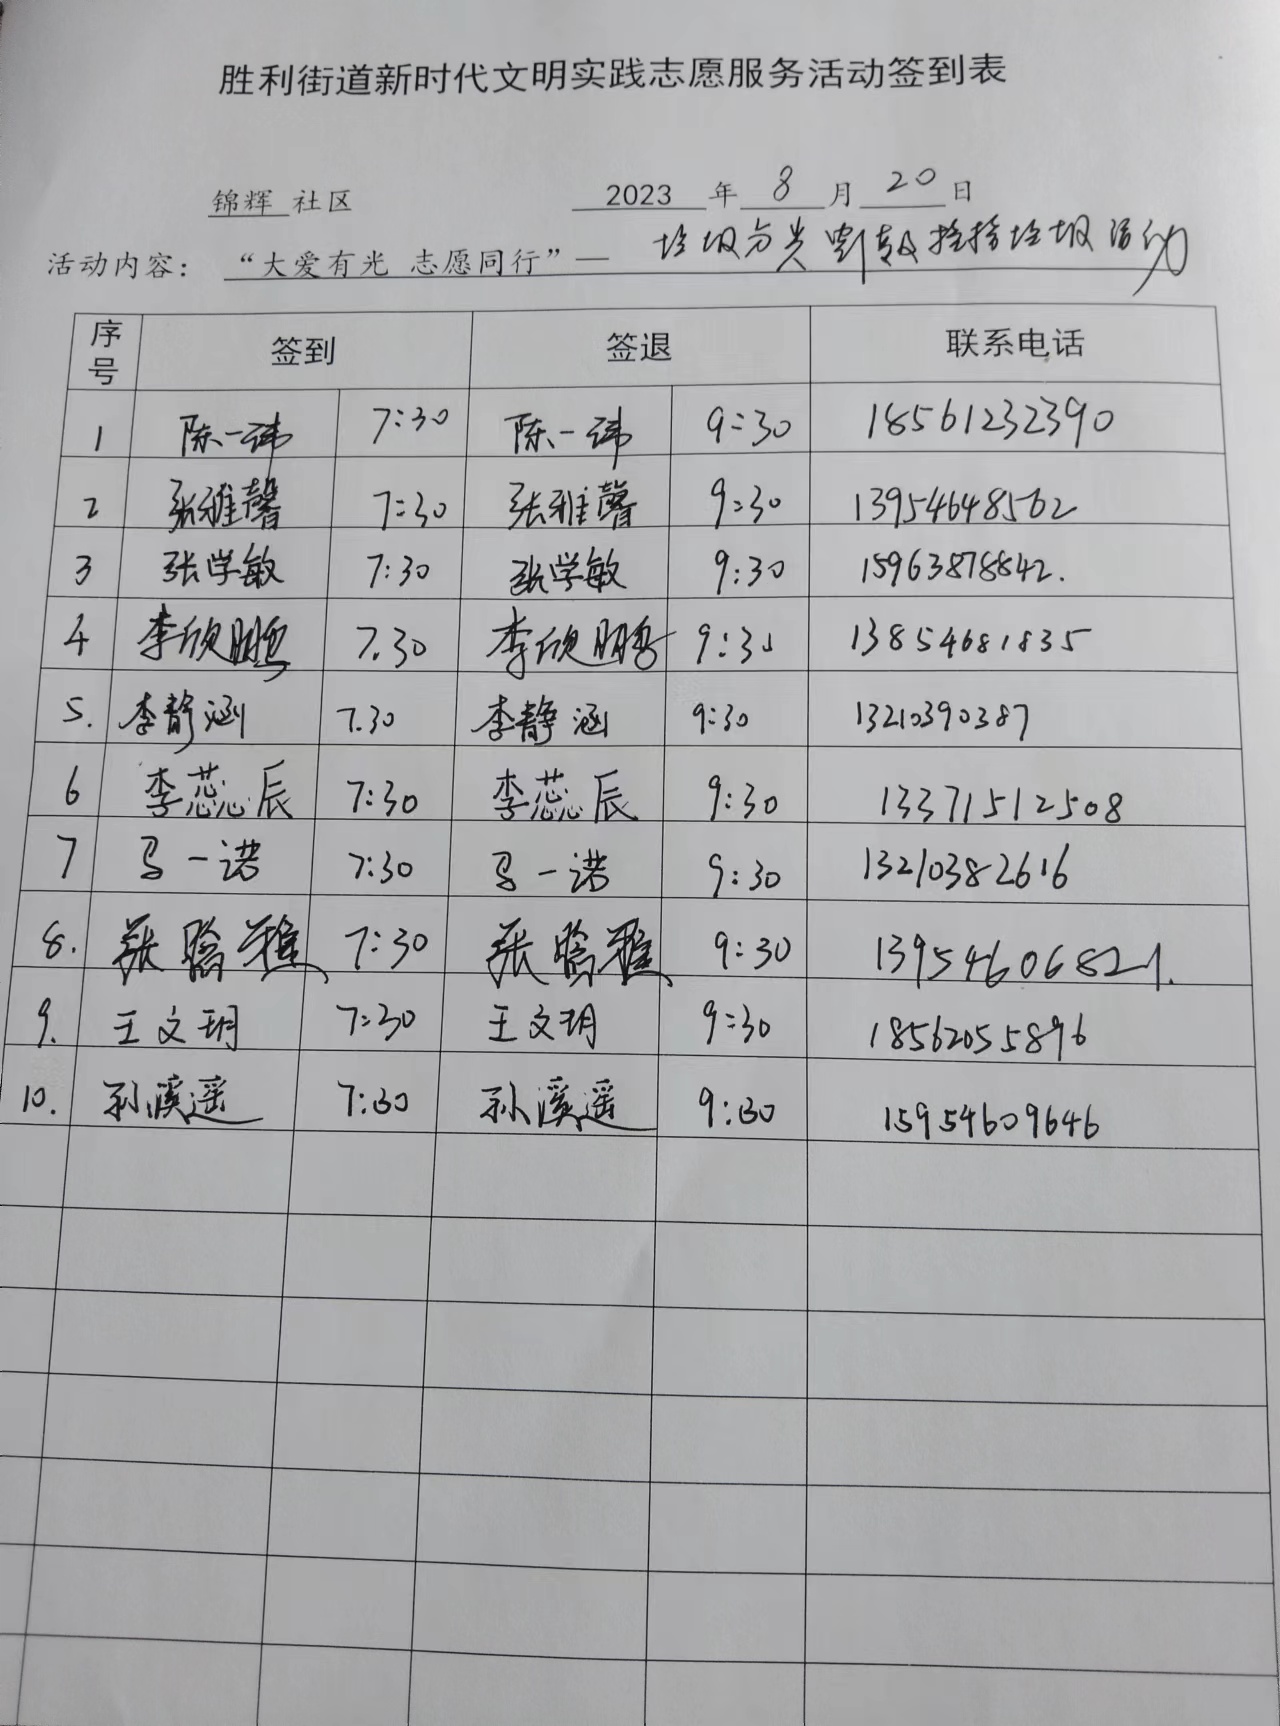 胜利街道新时代文明实践志愿服务活动签到表
锦辉 社区 2023 年 8 月 20 日
活动内容： “大爱有光 志愿同行”— 垃圾分类 捡拾垃圾活动
序号 签到 签退 联系电话
1 陈一玮 7:30 陈一玮 9:30 18561232390
2 张雅馨 7:30 张雅馨 9:30 13954648562
3 张学敏 7:30 张学敏 9:30 15963878842.
4 李欣鹏 7.30 李欣鹏 9:30 13854681835
5. 李静涵 7.30 李静涵 9:30 13210390387
6 李蕊辰 7:30 李蕊辰 9:30 13371512508
7 马一诺 7:30 马一诺 9:30 13210382616
8. 张晗雅 7:30 张晗雅 9:30 13954606821.
9. 王文玥 7:30 王文玥 9:30 18562055896
10. 孙溪遥 7:30 孙溪遥 9:30 15954609646